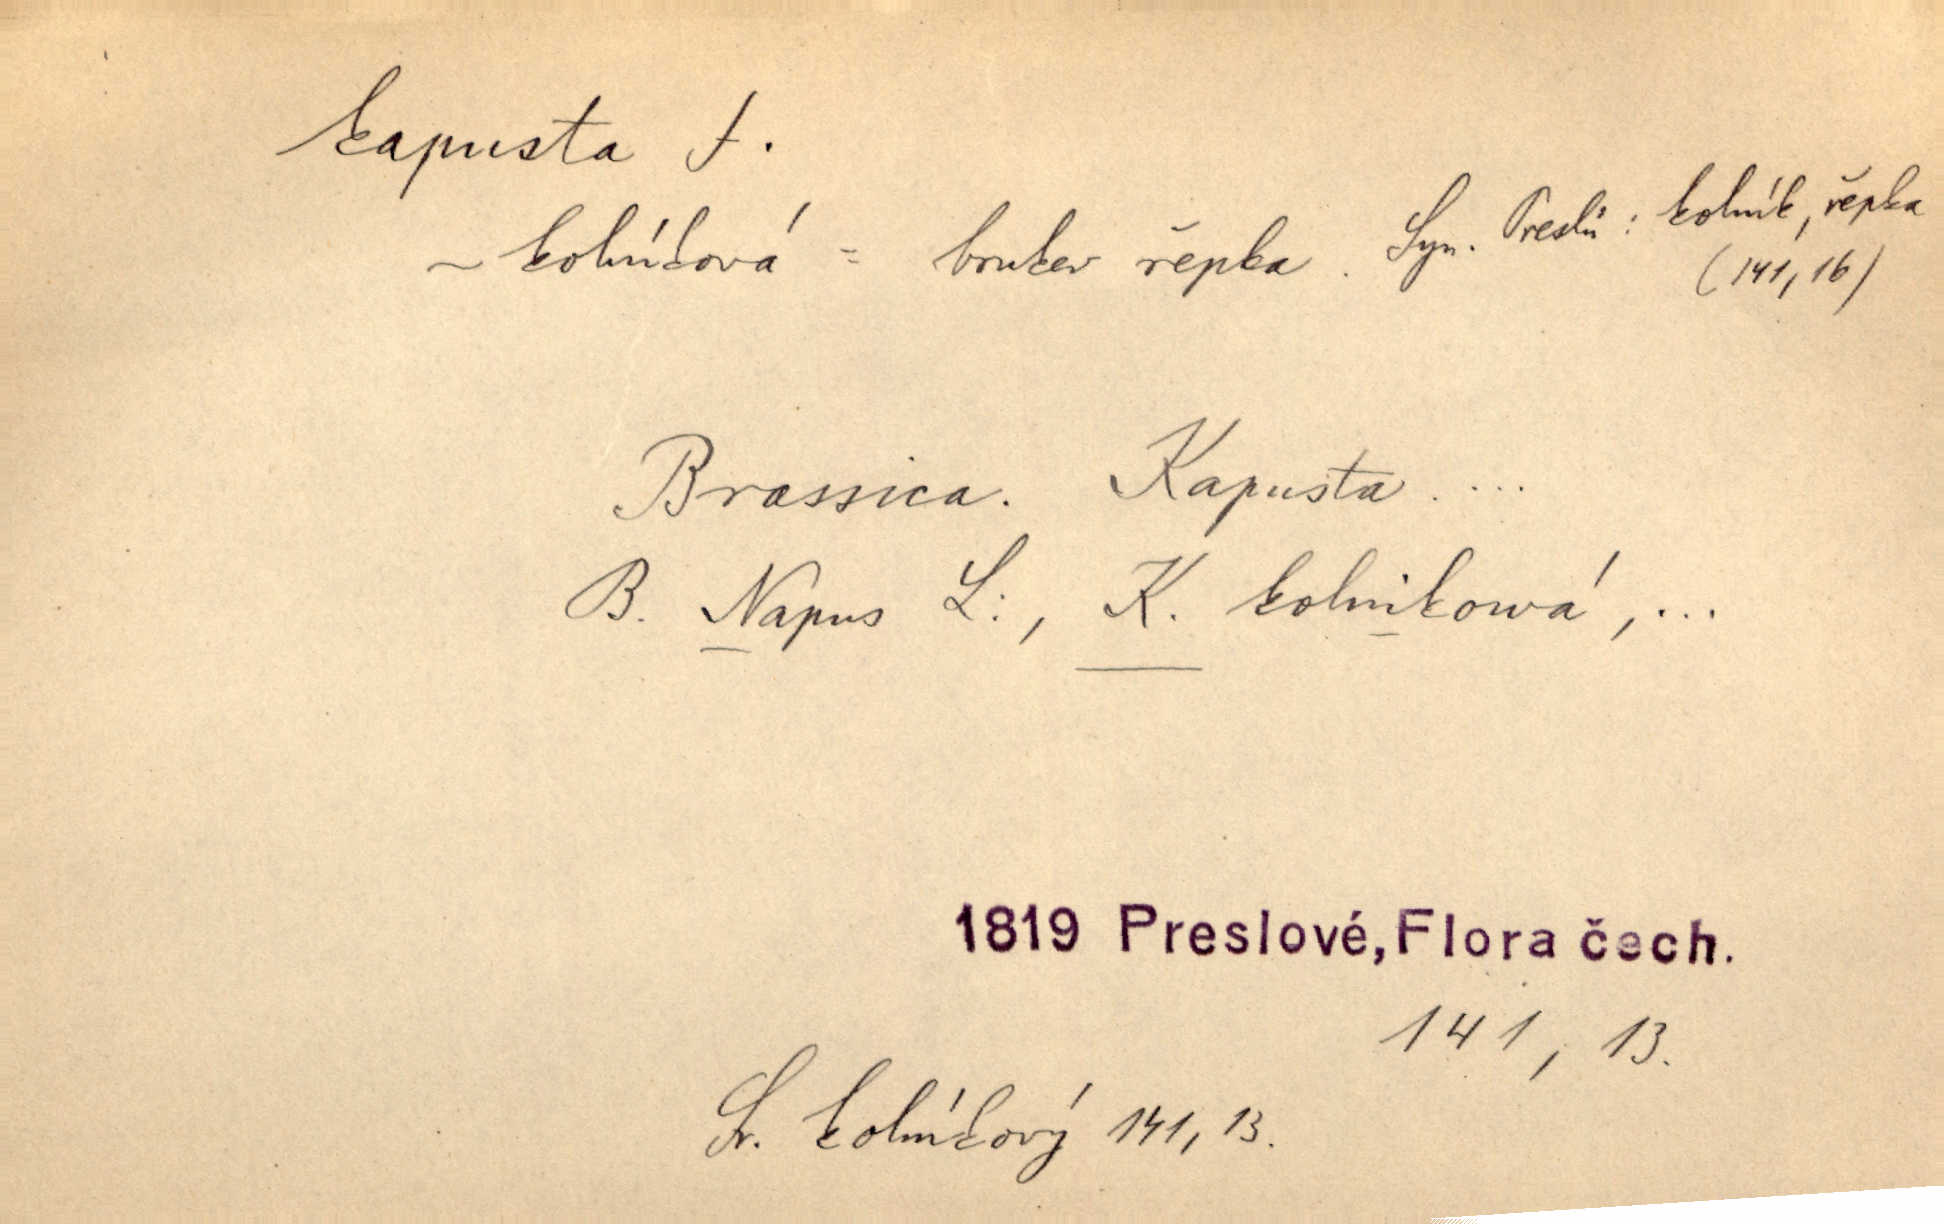 kapusta f.
~ kolníková = brukev řepka. Syn. Preslů: kolník, řepka
(141, 16)
Brassica. Kapusta....
B. Napus L:, K. kolnikowá,...
1819 Preslové, Flora čech.
141, 13.
Sr. kolníkový 141, 13.